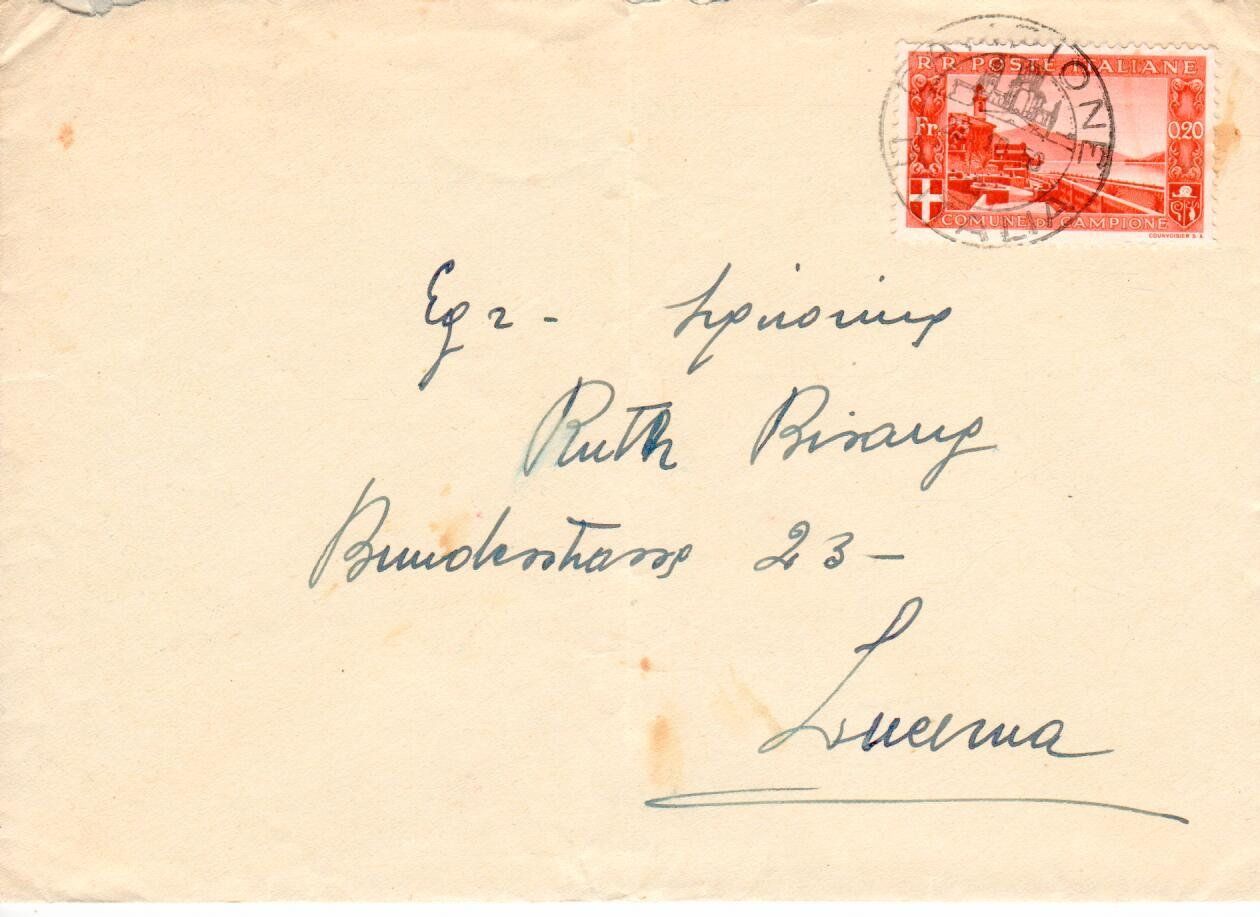 R R POSTE ITALIANE
Fr. 0,20
COMUNE DI CAMPIONE
COURVOISIER S.A.
CAMPIONE
ITALIA
Egr - Signorina
Ruth Bisang
Bundesstrasse 23 -
Lucerna